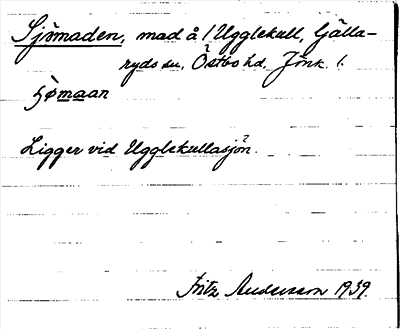 Sjömaden, mad å 1 Ugglekull, Gälla-
ryds sn. Östbo hd. Jönk. l.
Ligger vid Ugglekullasjön.
Fritz Andersson 1939.